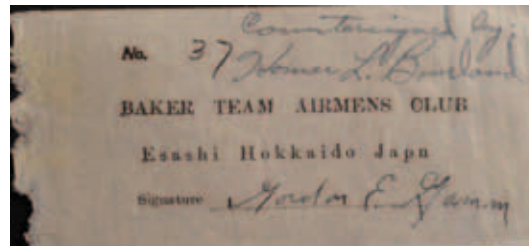 Countersigned by
No. 37 Homer L. Bourland
BAKER TEAM AIRMENS CLUB
Esashi Hokkaido Japn
Signature Gordon E.